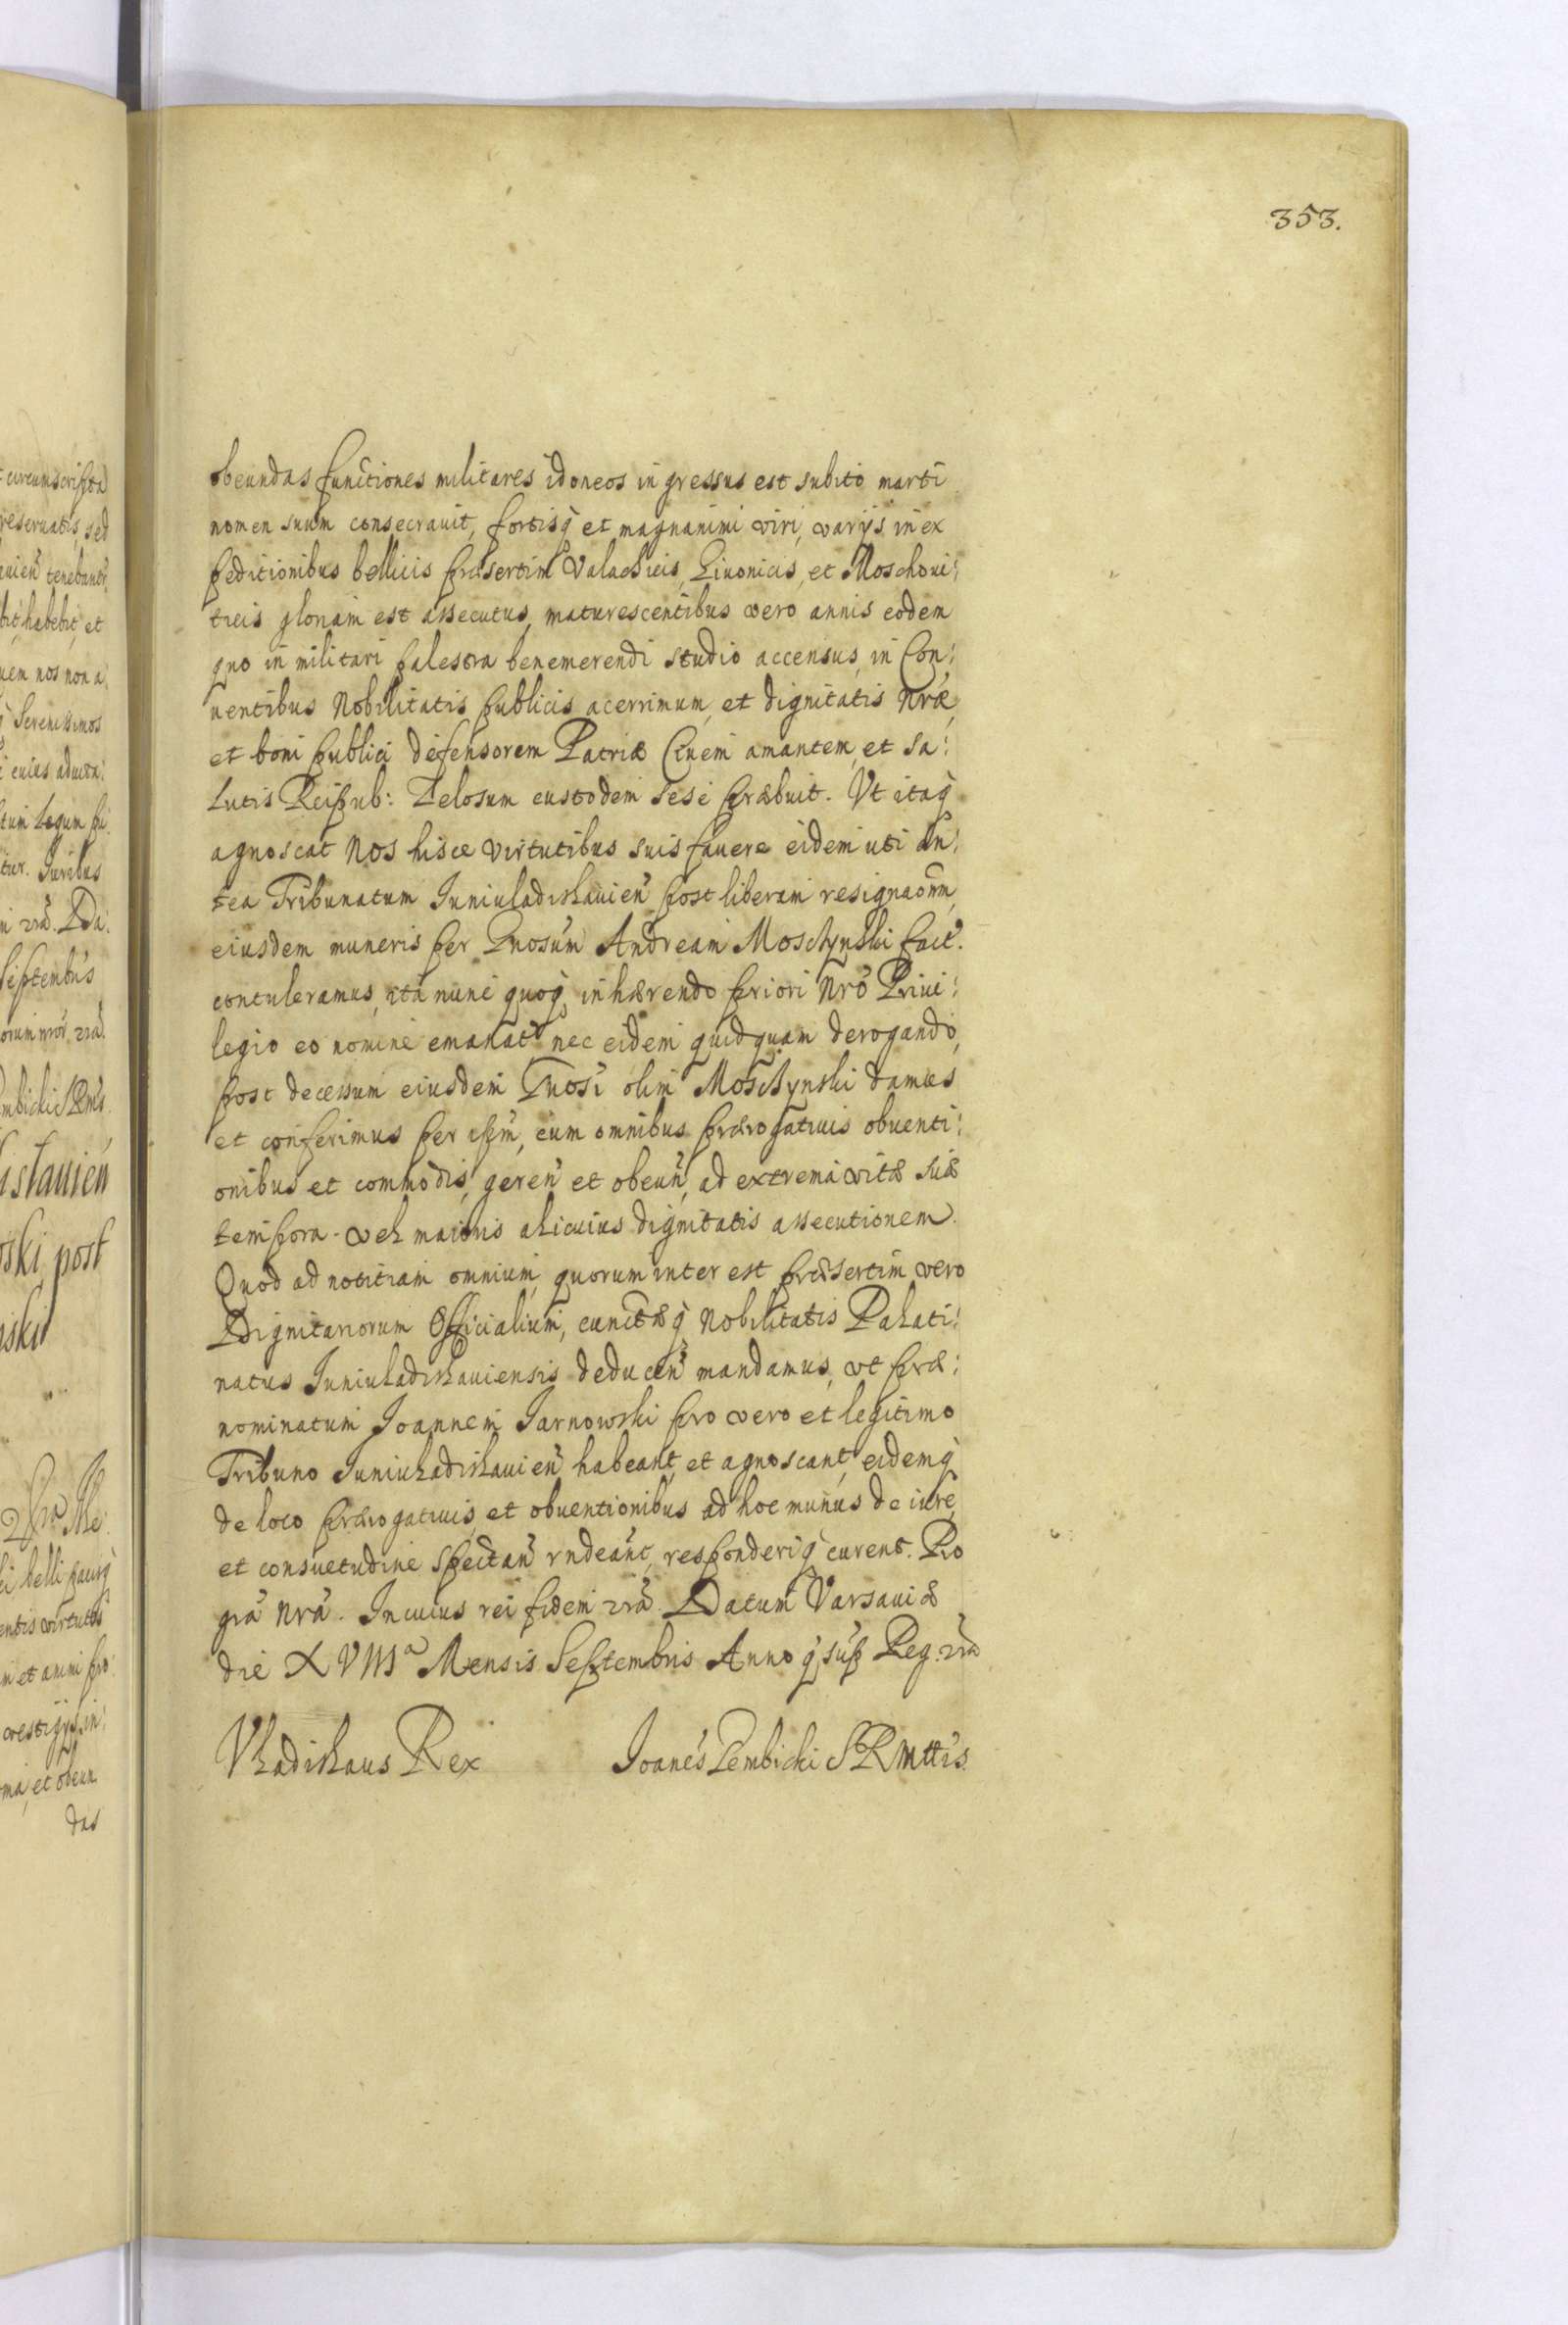 353.
obeundas functiones militares idoneos ingressus est subito marti
nomen suum consecrauit, fortisq̀ et magnanimi viri, varijs in ex
peditionibus bellicis præsertim Valachicis, Liuonicis, et Moschoui:
ticis gloriam est assecutus, maturescentibus vero annis eodem
quo in militari palestra benemerendi studio accensus, in Con:
uentibus Nobilitatis publicis acerrimum, et dignitatis Nræ,
et boni publici defensorem Patriæ Ciuem amantem, et sa:
lutis Reipub: Zelosum custodem sese præbuit. Vt itaq̀
agnoscat Nos hisce virtutibus suis fauere eidem uti an:
tea Tribunatum Juniuladislauień post liberam resignaõnm,
eiusdem muneris per Gnosum Andream Moschynski fact.
contuleramus, ita nunc quoq̀, inhærendo priori Nrõ Priui:
legio eo nomine emanato nec eidem quidquam derogando,
post decessum eiusdem Gnosi olim Moschynski damus
et conferimus per, cum omnibus prærogatiuis obuenti:
onibus et commodis, gereń et obeuń, ad extrema vitæ suæ
tempora vel maioris alicuius dignitatis assecutionem.
Quod ad notitiam omnium, quorum inter est præsertim vero
Dignitariorum Officialium, cunctæq̀ Nobilitatis Palati:
natus Juniuladislauiensis deduceń mandamus, vt præ:
nominatum Joannem Jarnowski pro vero et legitimo
Tribuno Juniuladislauień habeant, et agnoscant, eidemq̀
de loco prærogatiuis, et obuentionibus ad hoc munus de iure,
et consuetudine spectań rndeant, responderiq̀ curent. Pro
grã Nrã. In cuius rei fidem rrã. Datum Varsauiæ
die XVIIIa Mensis Septembris Anno q̀ sup Reg. rrã
Vladislaus Rex Joanes Lembicki S R Mttis.